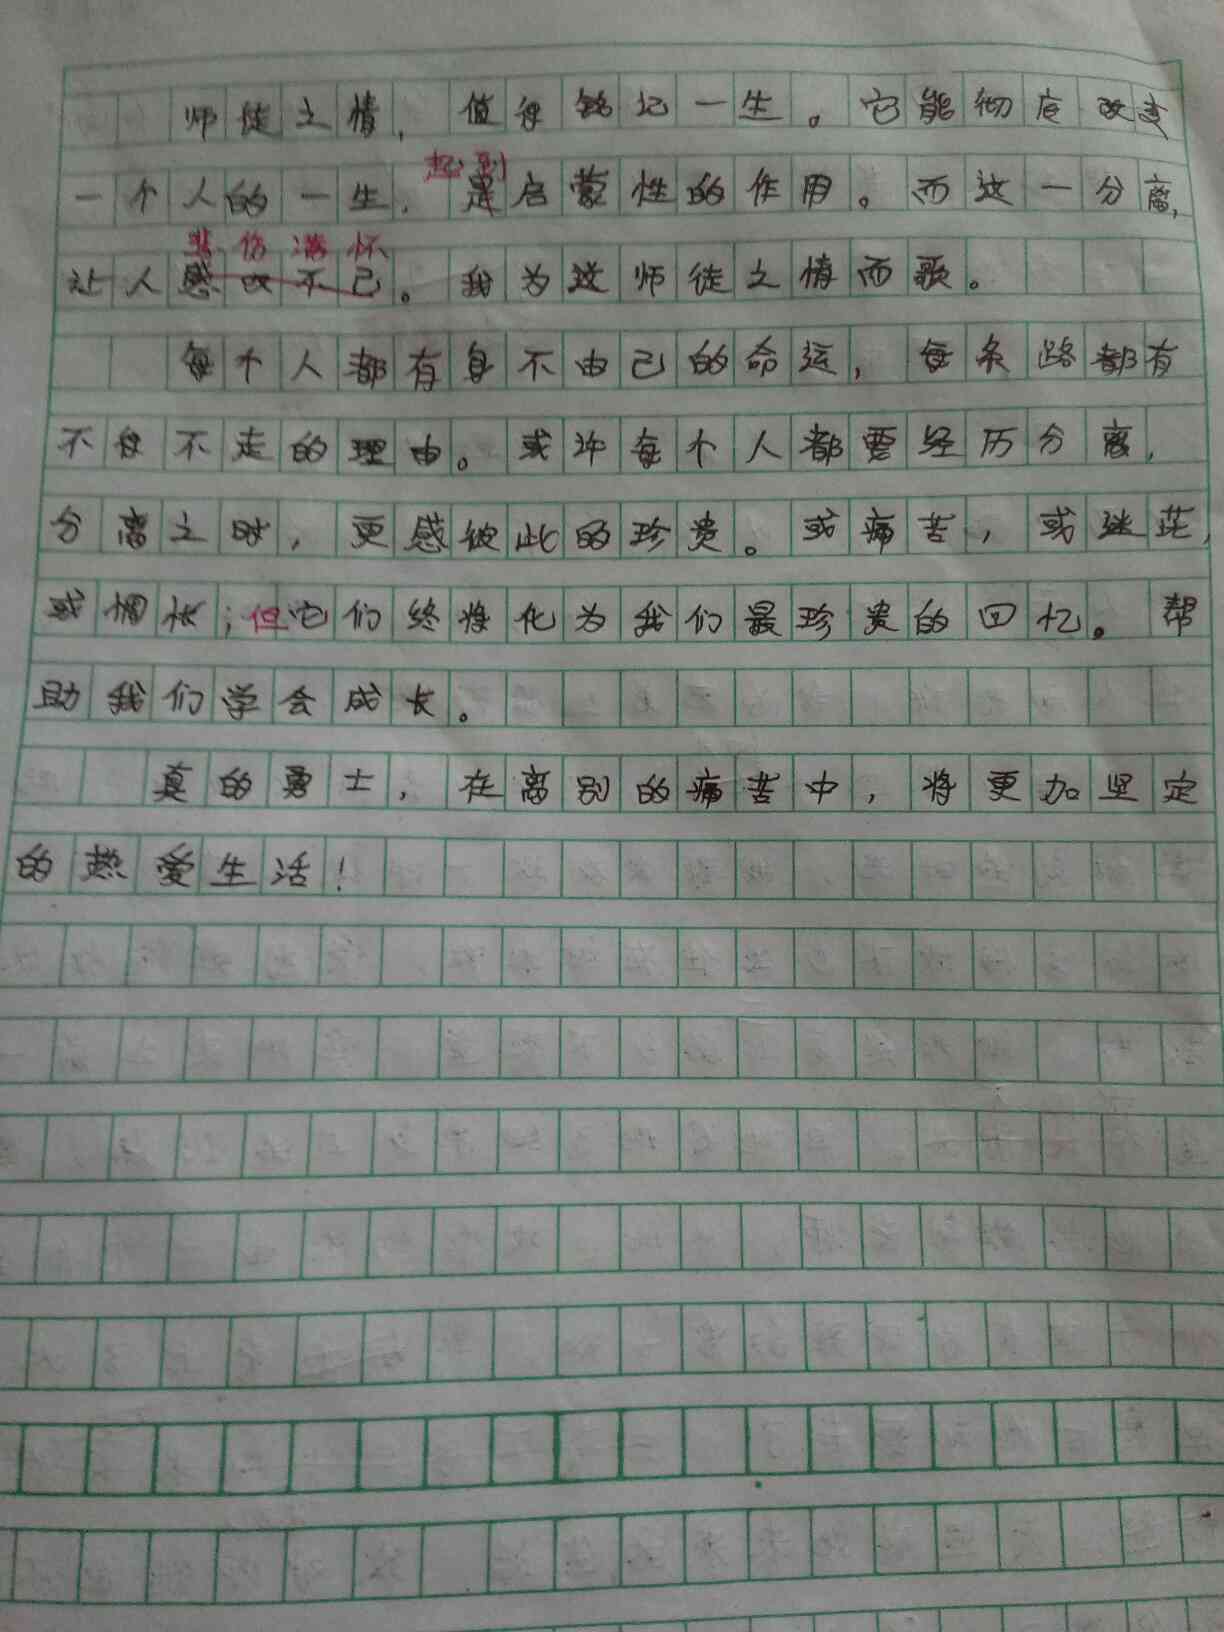 师徒之情，值得铭记一生。它能彻底改变
一个人的一生，起到是启蒙性的作用。而这一分离，
悲伤满怀
让人感叹不已。我为这师徒之情而歌。
每个人都有身不由己的命运，每条路都有
不得不走的理由。或许每个人都要经历分离，
分离之时，更感彼此的珍贵。或痛苦，或迷茫，
或惆怅；但它们终将化为我们最珍贵的回忆。帮
助我们学会成长。
真的勇士，在离别的痛苦中，将更加坚定
的热爱生活！